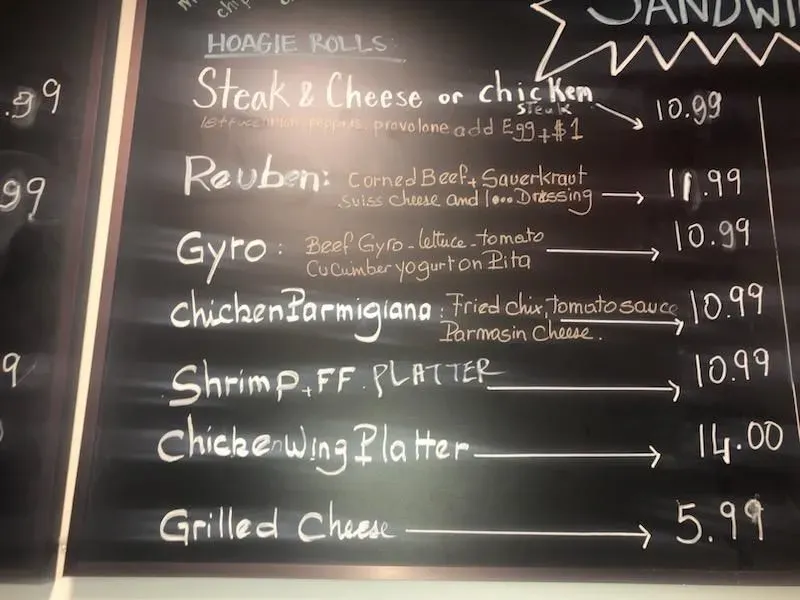 SANDWI
HOAGIE ROLLS:
Steak & Cheese or chicken steak 10.99
lettuce peppers, provolone add Egg +$1
Reuben: Corned Beef + Sauerkraut 11.99
suiss cheese and 1000 Dressing
Gyro: Beef Gyro-lettuce-tomato 10.99
Cucumber yogurt on Pita
chicken Parmigiana: Fried chix, tomato sauce 10.99
Parmasin Cheese.
Shrimp + FF. PLATTER 10.99
Chicken Wing Platter 14.00
Grilled Cheese 5.99
.99
99
9